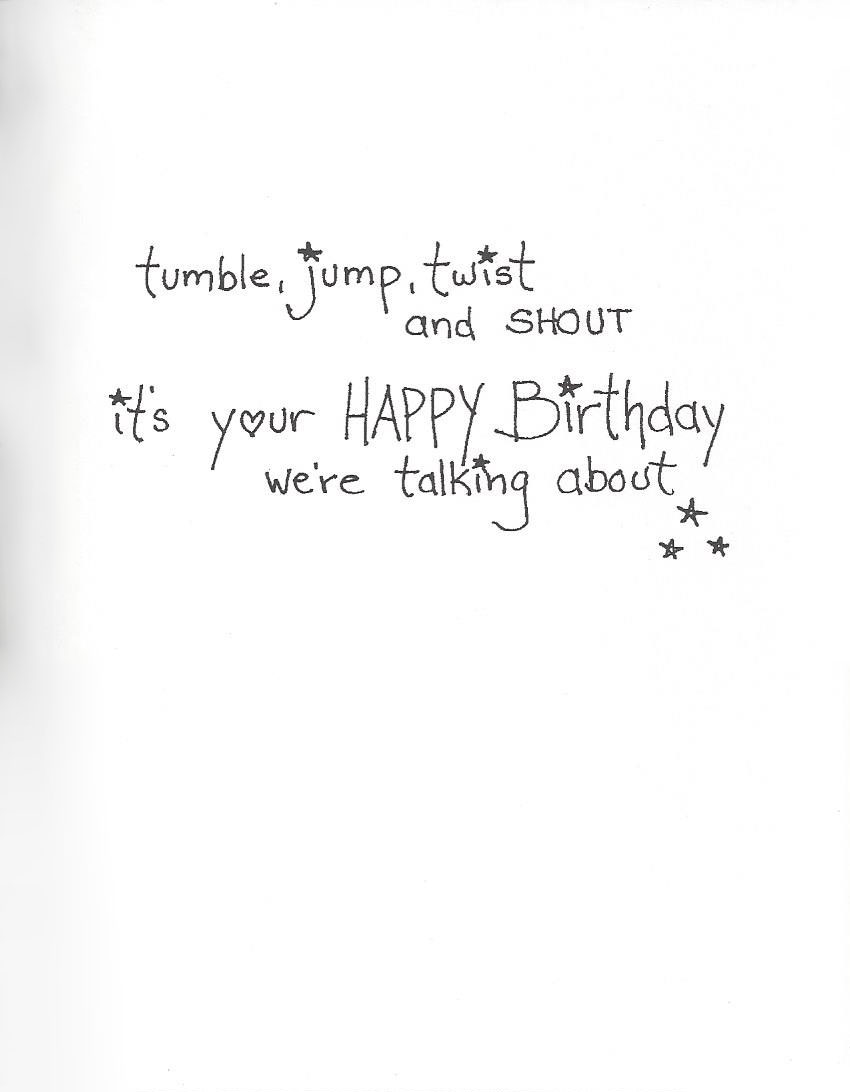 tumble, jump, twist
and SHOUT
it's your HAPPY Birthday
we're talking about